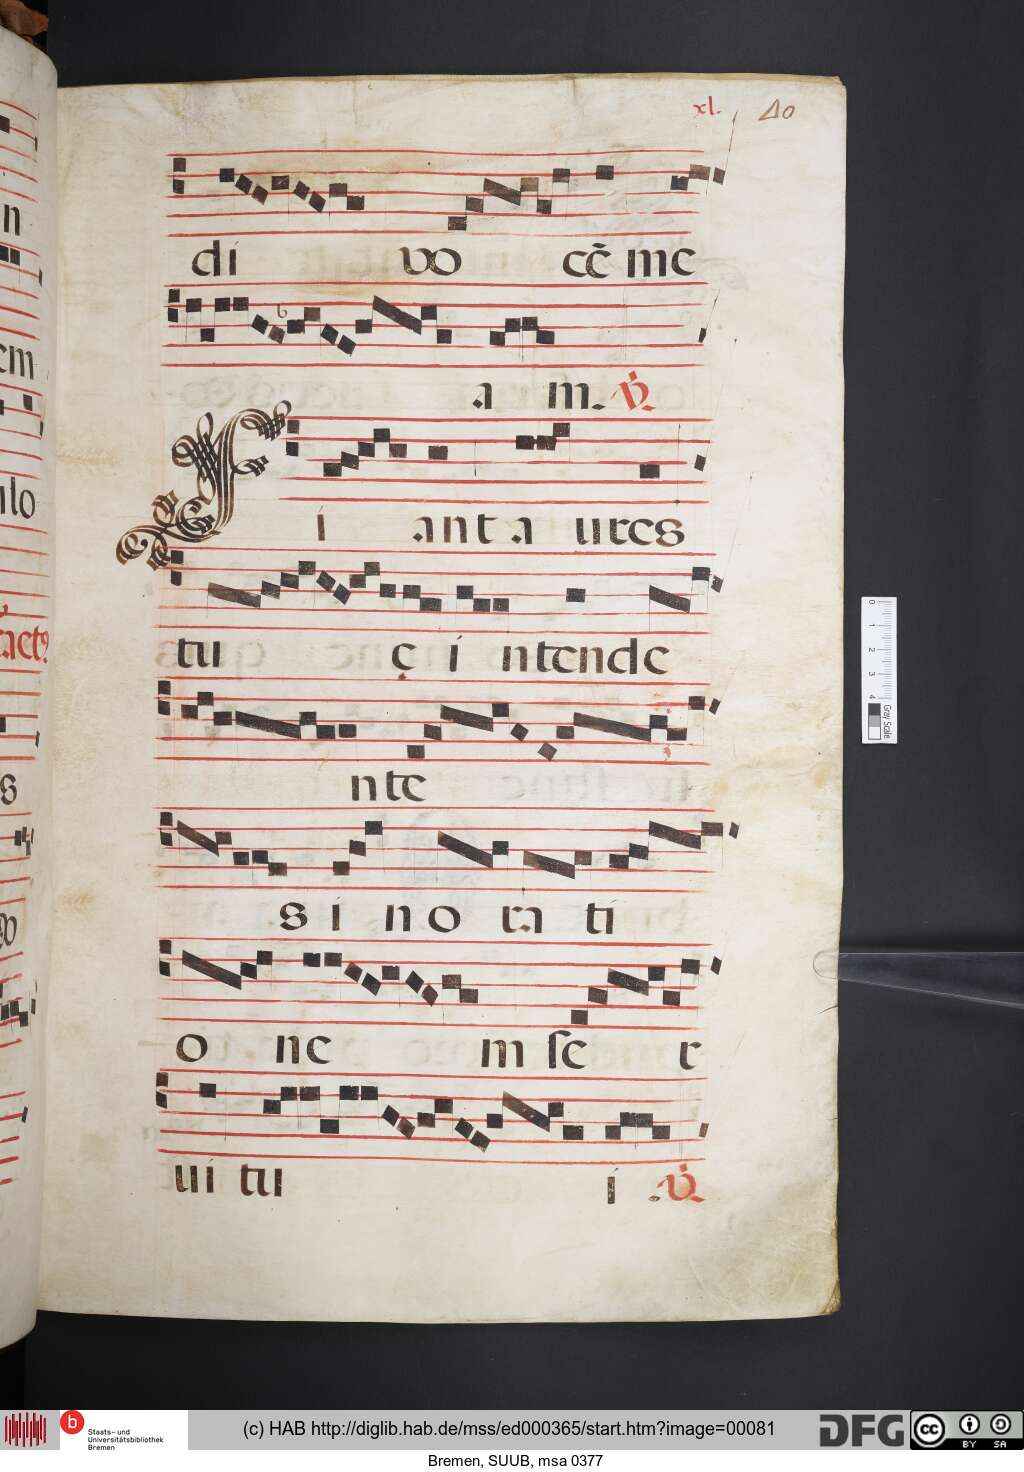 xl. 40
di vo cē me
a m. ℣
Fi ant a ures
tu ę i ntende
nte
s i n o ra ti
o ne m se r
ui tu i .℣
n
em
ulo
s
0 1 2 3 4
Gray Scale
b Staats- und Universitätsbibliothek Bremen
(c) HAB http://diglib.hab.de/mss/ed000365/start.htm?image=00081
DFG
cc BY SA
Bremen, SUUB, msa 0377